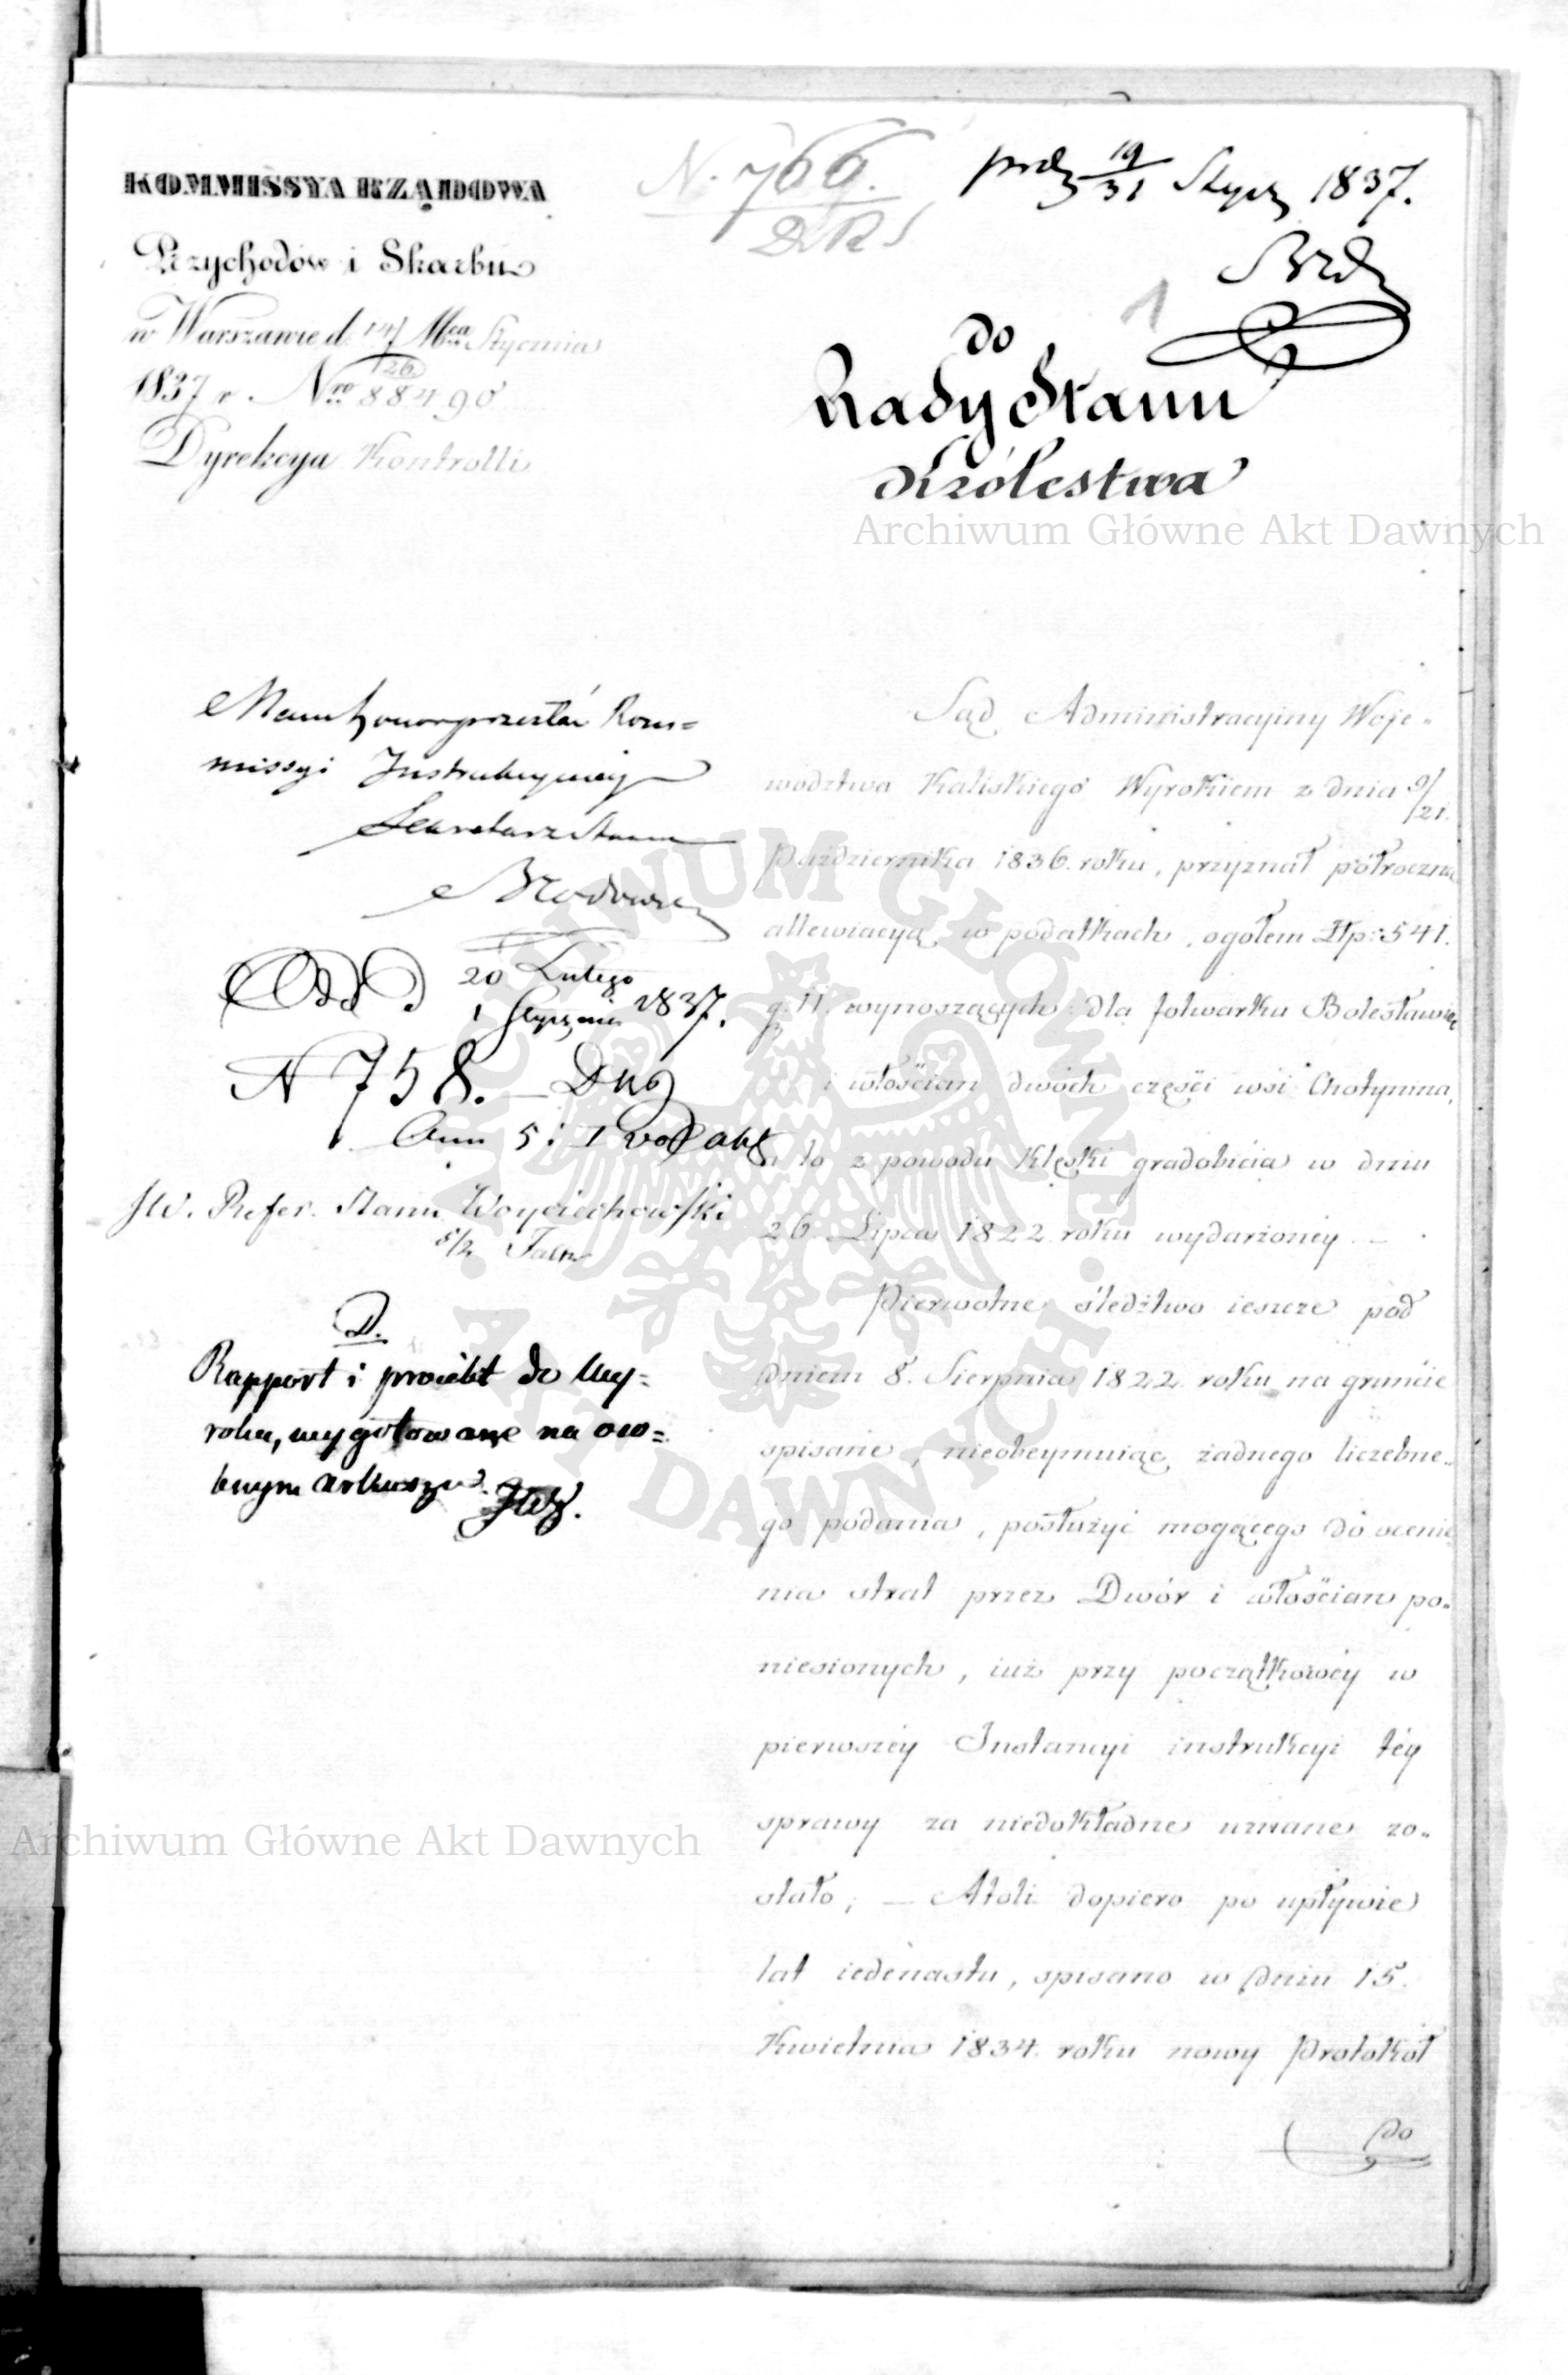 KOMMISSYA RZĄDOWA
Przychodów i Skarbu
w Warszawie d. 14/26 Mca Stycznia
1837 r. Nro 88490
Dyrekcya Kontrolli
N. 766.
prdz 19/31 Stycz 1837.
Brdz
1
do
Rady Stanu
Królestwa
Archiwum Główne Akt Dawnych
Mam honor przesłać Kom=
missyi Instrukcyiney
Sekretarz Stanu
Brodowski
20 Lutego
1 Stycznia 1837.
N 758.
JW. Refer. Stanu Woyciechowski
D.
Rapport i proiekt do Wy=
roku, wygotowane na od=
bnym arkuszu.
Sąd Administracyiny Woje=
wództwa Kaliskiego Wyrokiem z dnia 9/21.
Października 1836. roku, przyznał półroczną
allewiacyą w podatkach, ogółem Złp: 541.
g. 11. wynoszących: dla folwarku Bolesławiec
i włościan dwóch części wsi Chotynina,
a to z powodu klęski gradobicia w dniu
26 Lipca 1822 roku wydarzoney —
Pierwotne śledztwo ieszcze pod
dniem 8. Sierpnia 1822. roku na gruncie
spisane, nieobeymuiąc żadnego liczebne=
go podania, posłużyć mogącego do ocenie
nia strat przez Dwór i włościan po=
niesionych, iuż przy początkowéy w
pierwszéy Instancyi instrukcyi téy
sprawy za niedokładne uznane zo=
stało; — Atoli dopiero po upływie
lat iedenastu, spisano w dniu 15.
Kwietnia 1834. roku nowy Protokół
do
Archiwum Główne Akt Dawnych
ARCHIWUM GŁÓWNE AKT DAWNYCH